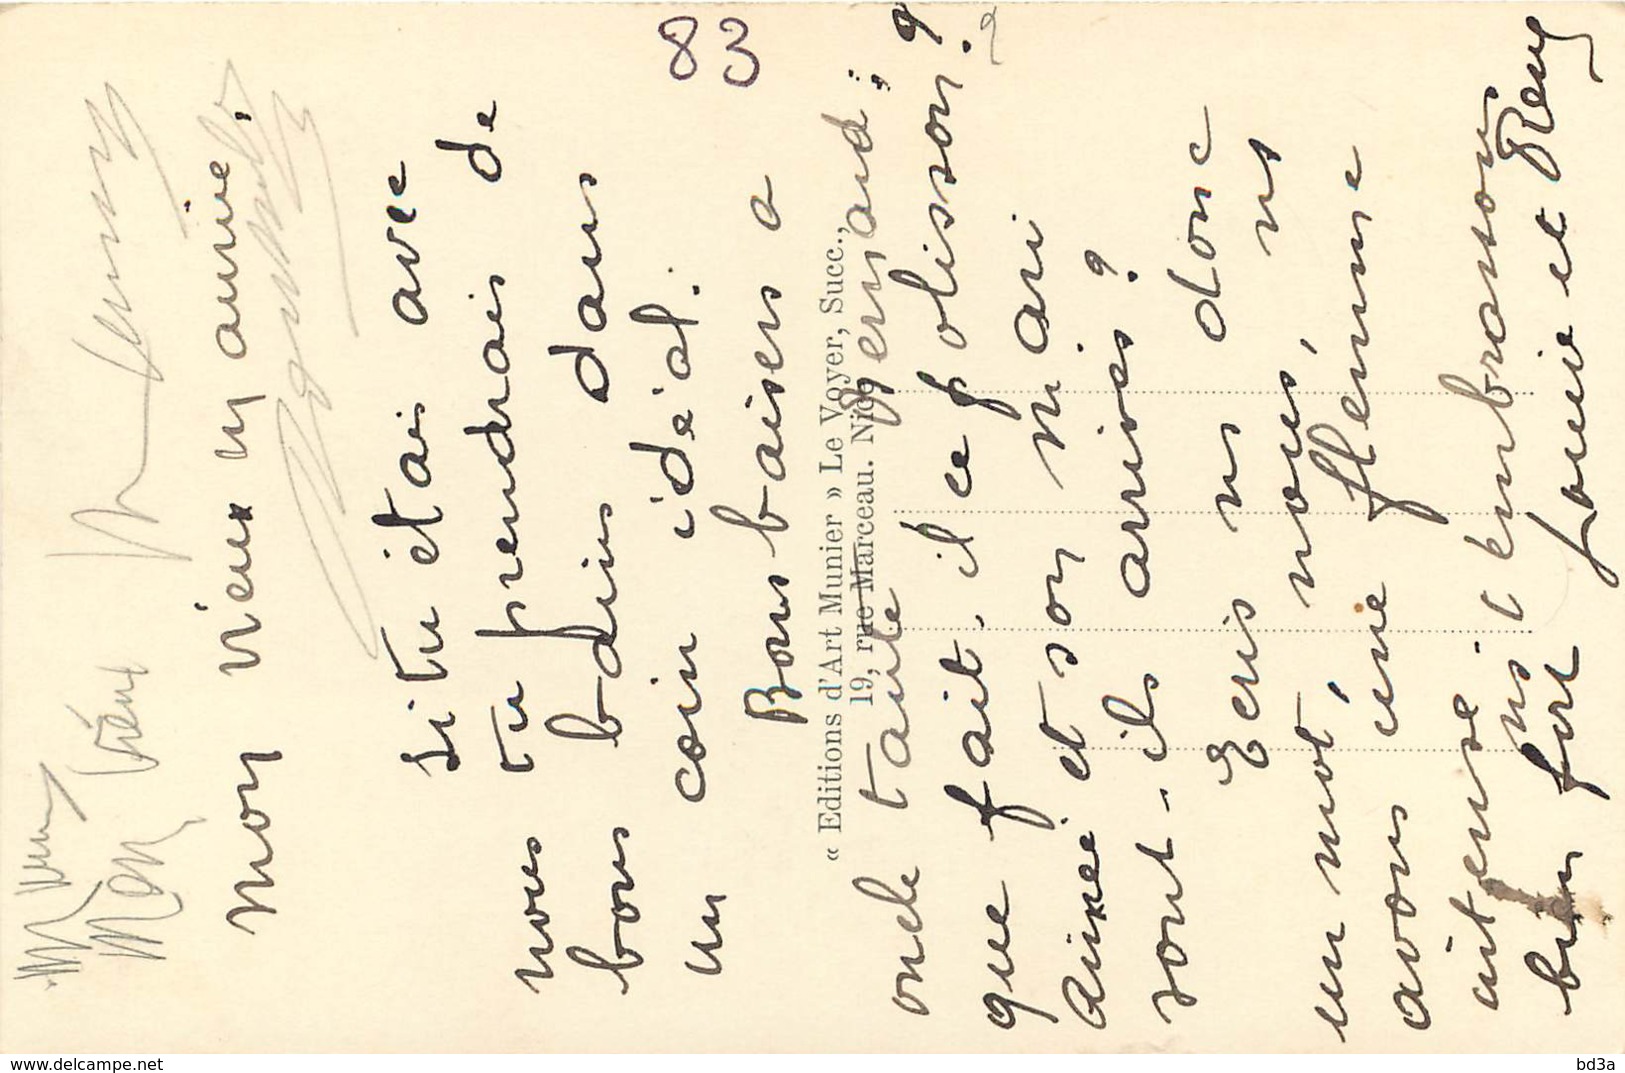 83
Mon vieux
Mon vieux m aimé,
si tu étais avec
nous tu prendrais de
bons bains dans
un coin idéal.
Bons baisers a
oncle tante Bernard ;
que fait-il ce polisson ?
Aimée et son mari
sont-ils arrivés ?
Ecris ns donc
un mot, nous, ns
avons une flemme
intense
ns t'embrassons
bien fort Louise et Remy
« Editions d'Art Munier » Le Voyer, Succ.,
19, rue Marceau. Nice
www.delcampe.net
bd3a